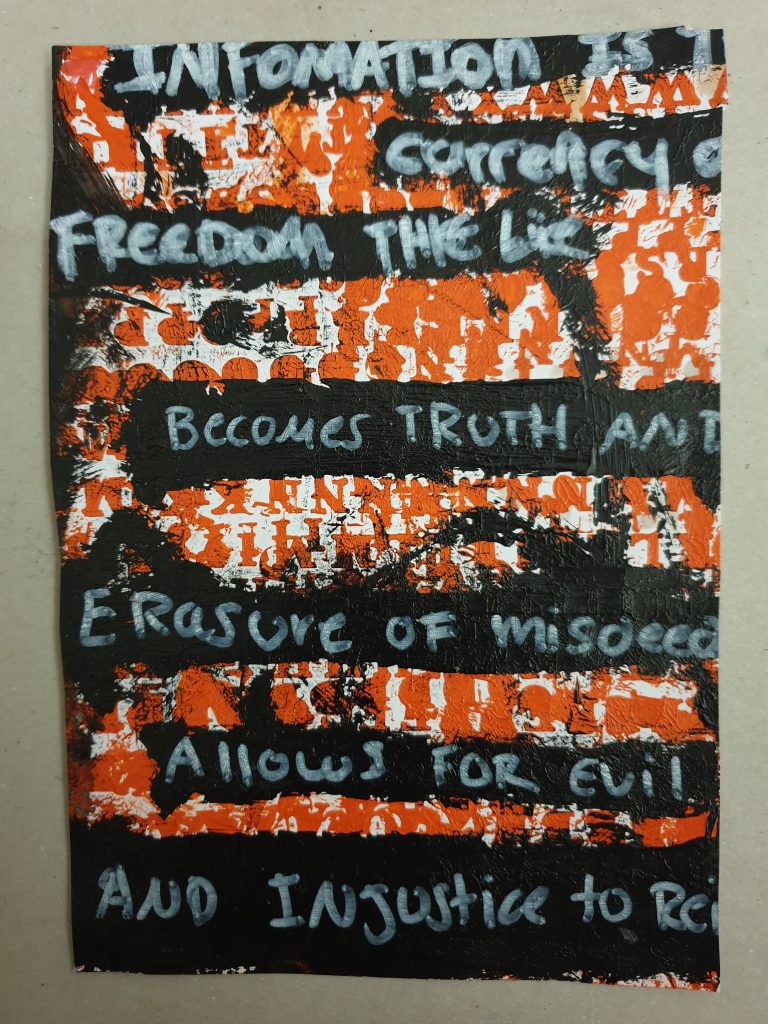 INFOMATION IS T
currency o
FREEDOM THE Lie
Becomes TRUTH AND
ERasure OF misdeed
Allows FOR Evil
AND INJustice to Rei